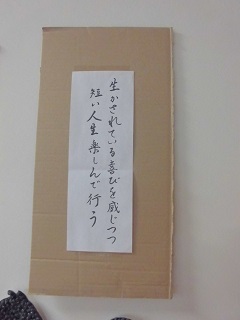 生かされている喜びを感じつつ
短い人生楽しんで行う